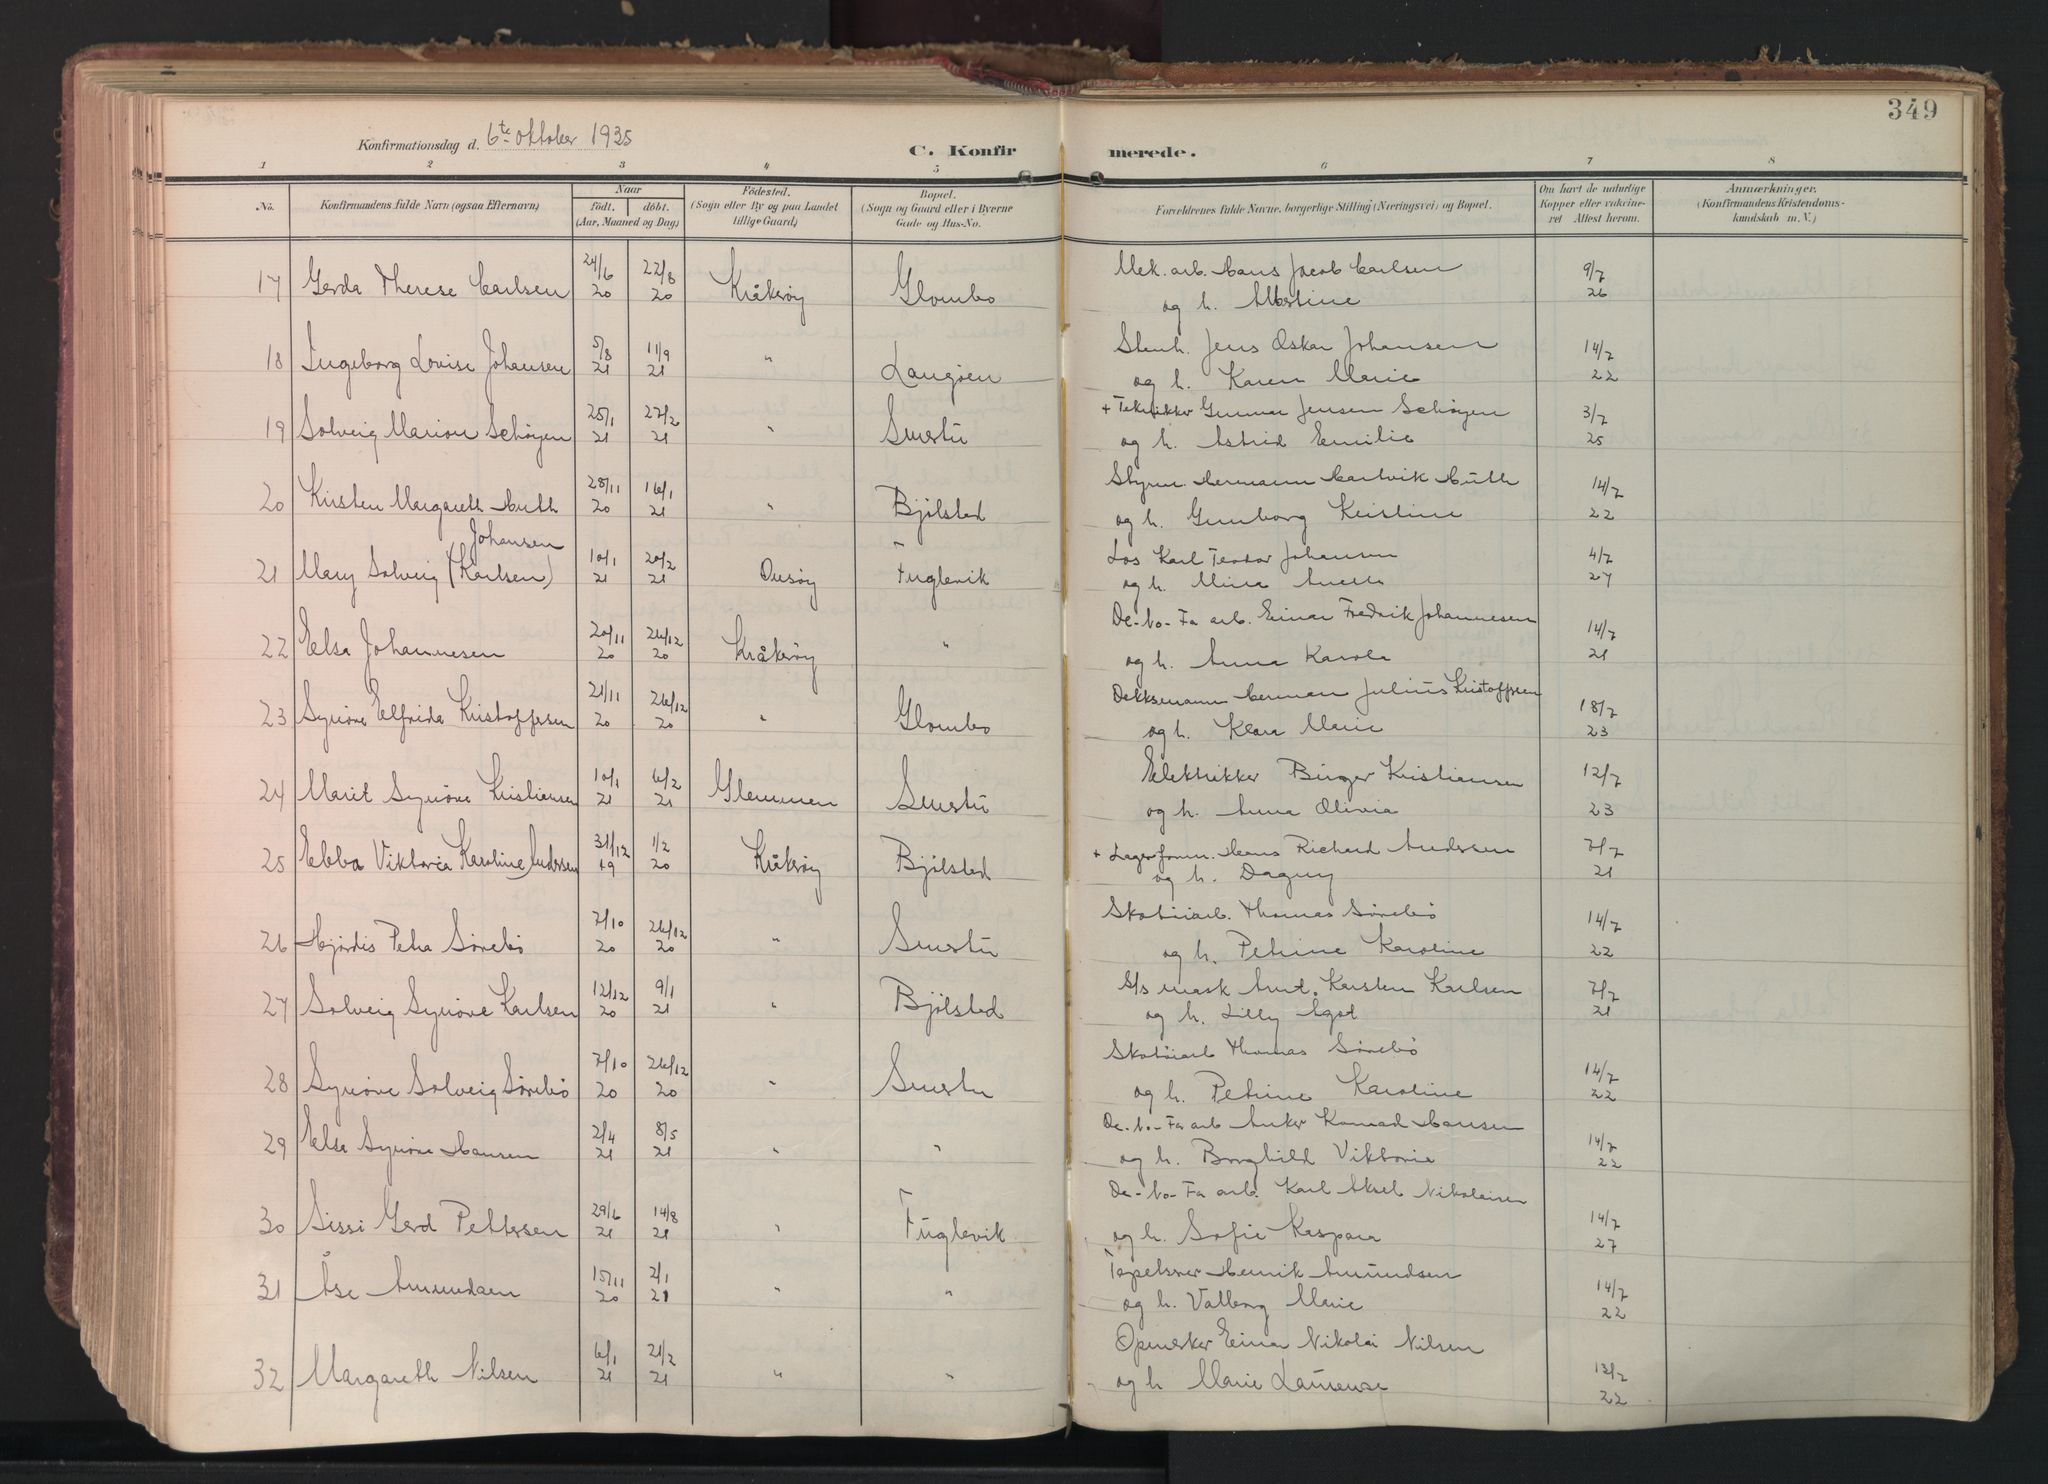 349
Konfirmationsdag d. 6te oktober 1935
C. Konfirmerede.
1 2 3 4 5 6 7 8
No. Konfirmandens fulde Navn (ogsaa Efternavn) Naar födt. döbt. (Aar, Maaned og Dag) Födested. (Sogn eller By og paa Landet tillige Gaard) Bopæl. (Sogn og Gaard eller i Byerne Gade og Hus-No. Forældrenes fulde Navne, borgerlige Stilling (Næringsvei) og Bopæl. Om havt de naturlige Kopper eller vakcineret Attest herom. Anmærkninger. (Konfirmandens Kristendomskundskab m. V.)
17 Gerda Therese Carlsen 24/6 20 22/8 20 Kråkerøy Glombo Mek. arb. Hans Jacob Carlsen 9/7 26
og h. Albertine
18 Ingeborg Lovise Johansen 5/8 21 11/9 21 " Langøen Jens Oskar Johansen 14/7 22
og h. Karen Marie
19 Solveig Marion Schøyen 25/1 21 27/2 21 " Smertu + Tekniker Gunnar Jensen Schøyen 3/7 25
og h. Astrid Emilie
20 Kirsten Margareth Huth 28/11 20 16/1 21 " Bjölstad Styrm. Hermann Hartvik Huth 14/7 22
og h. Gunborg Kristine
Johansen
21 Mary Solveig (Karlsen) 10/1 21 20/2 21 Onsøy Fuglevik Los Karl Teodor Johansen 4/7 27
og h. Mina
22 Elsa Johannesen 20/11 20 26/12 20 Kråkerøy " De-No-Fa arb. Einar Fredrik Johannesen 14/7 21
og h. Anna Karola
23 Synöve Elfrida Kristoffersen 21/11 20 26/12 20 " Glombo Dekksmann Herman Julius Kristoffersen 18/7 23
og h. Klara Marie
24 Marit Synöve Kristiansen 10/1 21 6/2 21 Glemmen Smertu Elektrikker Birger Kristiansen 12/7 23
og h. Anna Olivia
25 Ebba Viktoria Karoline Andersen 31/12 19 1/2 20 Kråkerøy Bjölstad + Lagerform. Hans Richard Andersen 7/7 21
og h. Dagny
26 Hjördis Petra Sörebö 7/10 20 26/12 20 " Smertu Skotöiarb. Thomas Sörebö 14/7 22
og h. Petrine Karoline
27 Solveig Synöve Karlsen 12/12 20 9/1 21 " Bjölstad G/s mask Karsten Karlsen 7/7 21
og h. Lilly Agot
28 Synöve Solveig Sörebö 7/10 20 26/12 20 " Smertu Skotöiarb Thomas Sörebö 14/7 22
og h. Petrine Karoline
29 Elsa Synöve Hansen 2/4 21 8/5 21 " " De-No-Fa arb Anker Konrad Hansen 14/7 22
og h. Borghild Viktoria
30 Sissi Gerd Pettersen 29/6 21 14/8 21 " Fuglevik De-No-Fa arb. Karl Aksel Nikolaisen 14/7 27
og h. Sofie Kaspara
31 Åse Amundsen 15/11 20 2/1 21 " " Tapetserer Henrik Amundsen 14/7 22
og h. Valborg Marie
32 Margareth Nilsen 6/1 21 21/2 21 " " Opmerker Einar Nikolai Nilsen 13/7 22
og h Marie Laurense